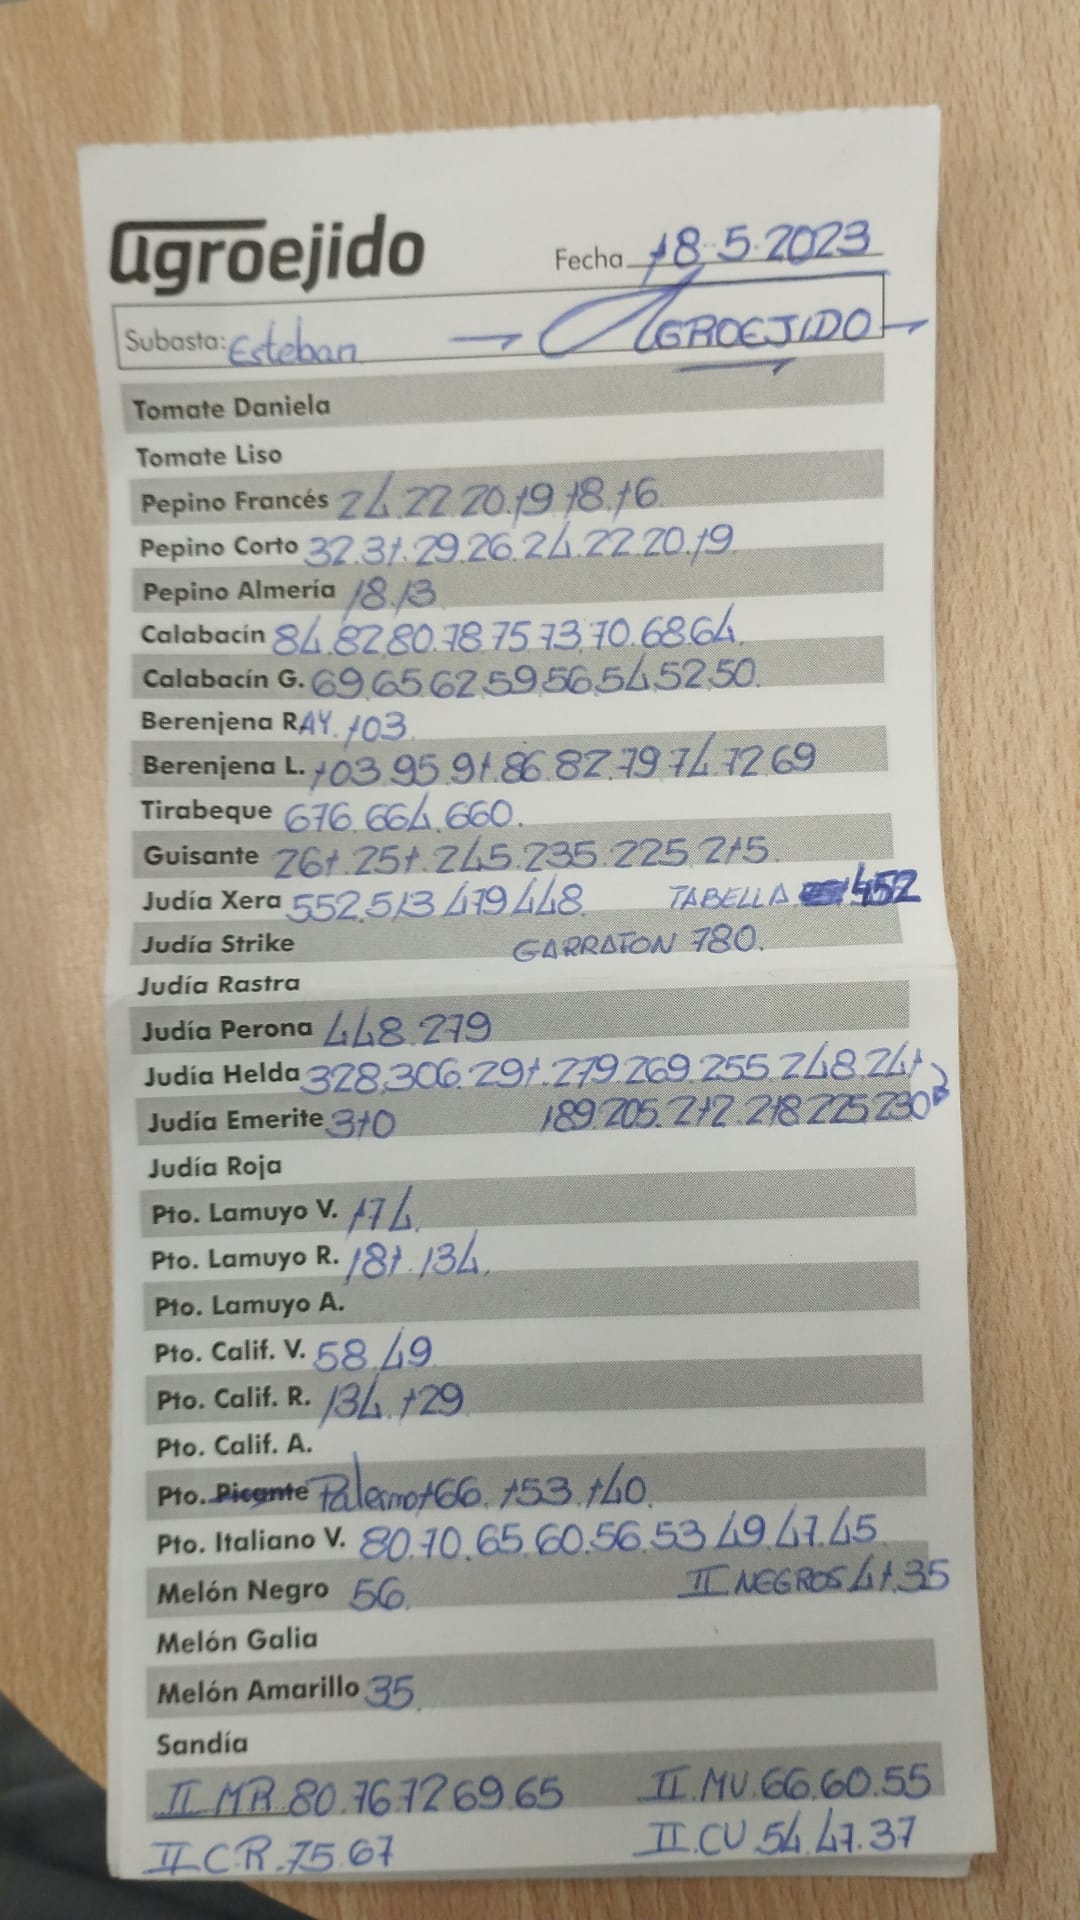 agroejido Fecha 18.5.2023
Subasta: Esteban → AGROEJIDO →
Tomate Daniela
Tomate Liso
Pepino Francés 24.22.20.19.18.16.
Pepino Corto 32.31.29.26.24.22.20.19
Pepino Almería 18.13
Calabacín 84.82.80.78.75.73.70.68.64.
Calabacín G. 69.65.62.59.56.54.52.50.
Berenjena RAY. 103.
Berenjena L. 103.95.91.86.82.79.74.72.69
Tirabeque 676.664.660.
Guisante 261.251.245.235.225.215.
Judía Xera 552.513.479.448. TABELLA 452
Judía Strike GARRATON 780.
Judía Rastra
Judía Perona 448.279
Judía Helda 328.306.291.279.269.255.248.241
Judía Emerite 310 189.205.212.218.225.230
Judía Roja
Pto. Lamuyo V. 174.
Pto. Lamuyo R. 181.134.
Pto. Lamuyo A.
Pto. Calif. V. 58.49
Pto. Calif. R. 134.129
Pto. Calif. A.
Pto. Picante Palermo 166.153.140.
Pto. Italiano V. 80.70.65.60.56.53.49.47.45.
Melón Negro 56. II NEGROS 41.35
Melón Galia
Melón Amarillo 35.
Sandía
II MR. 80.76.72.69.65 II. MU. 66.60.55
II.C.R. 75.67 II.CU.54.47.37